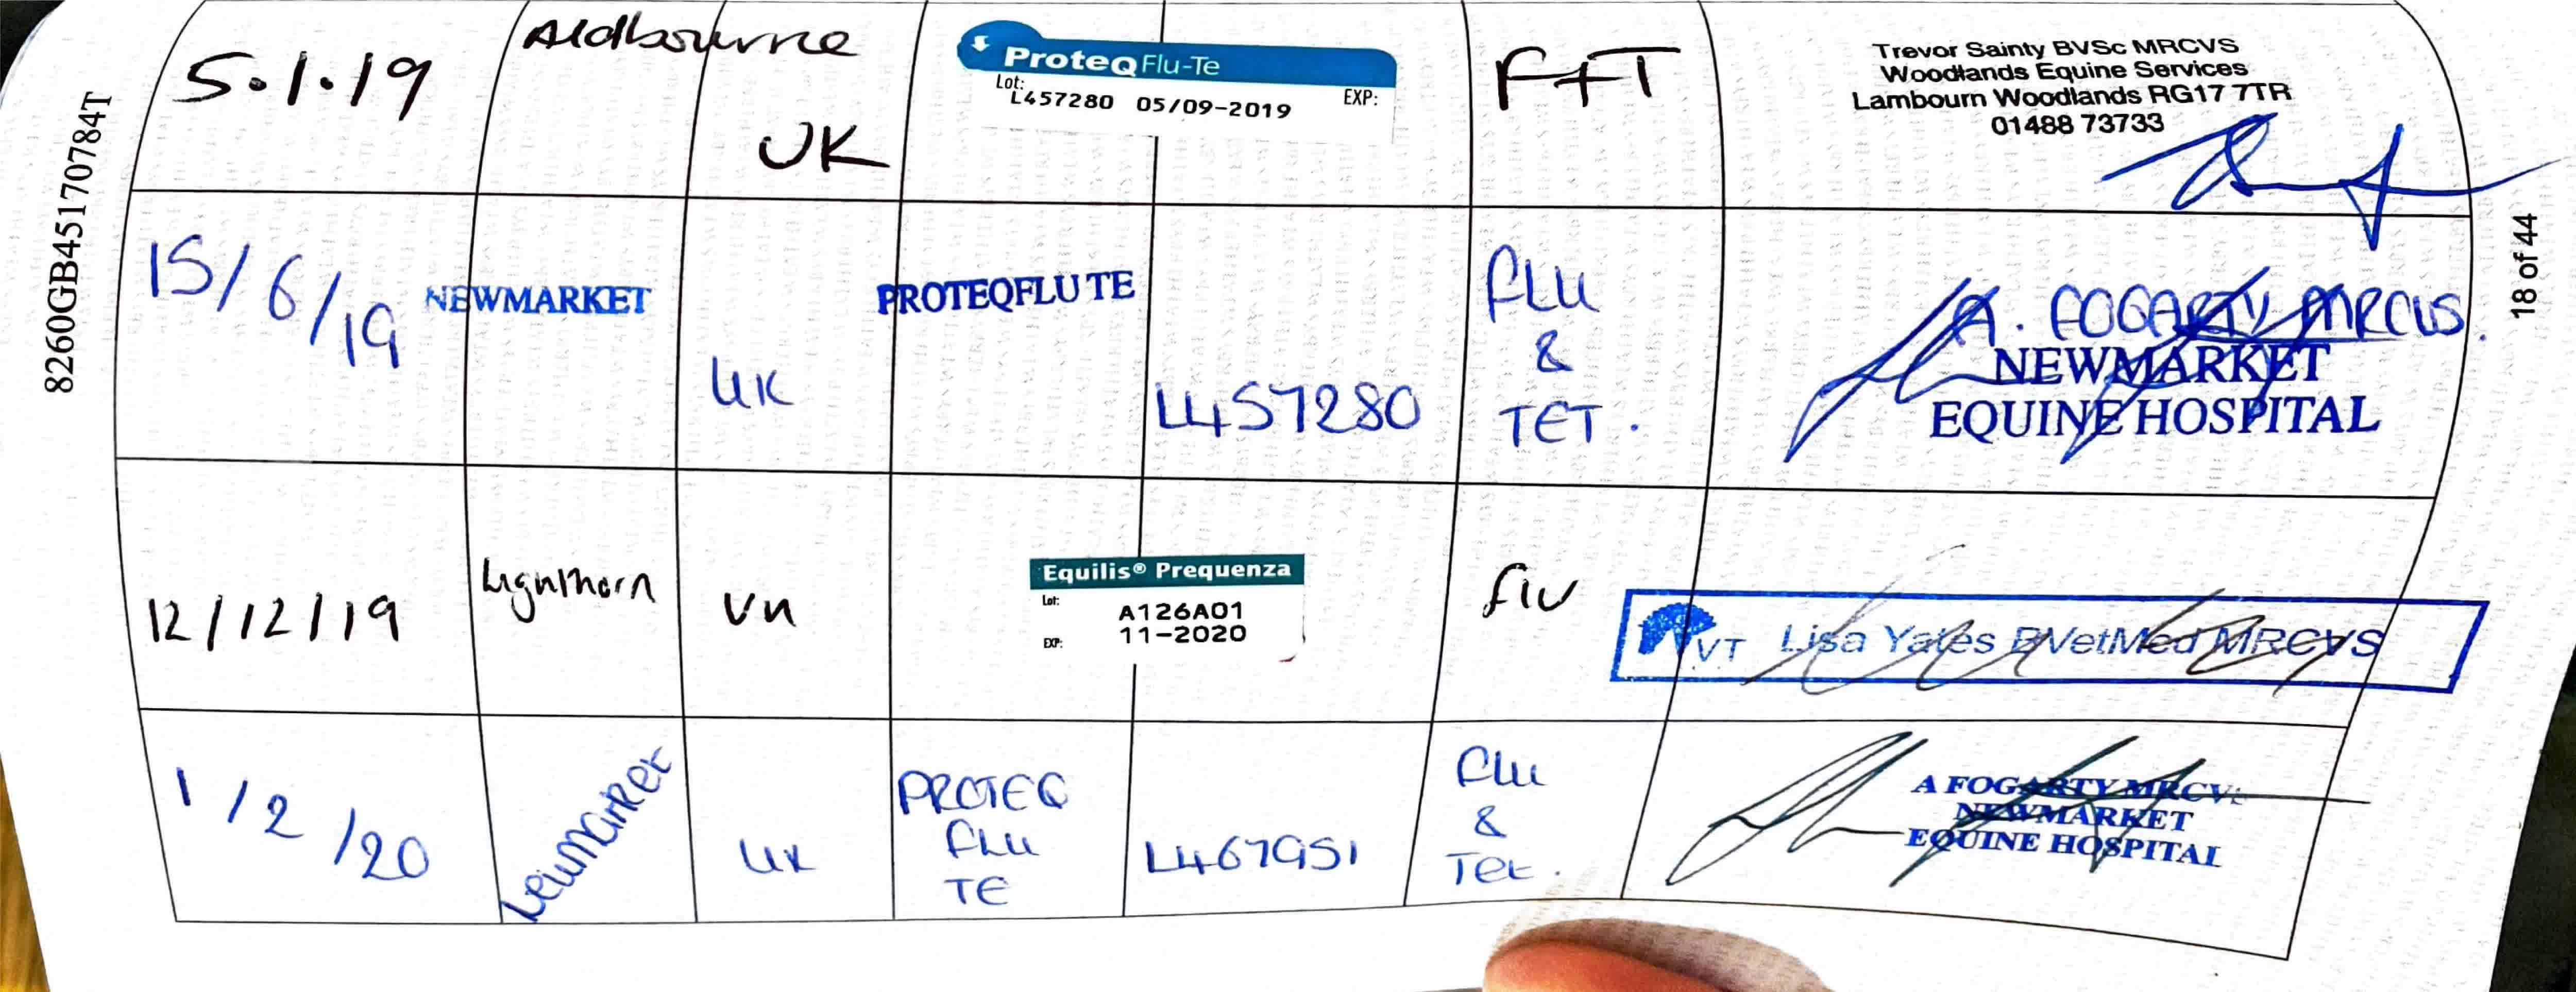 8260GB45170784T
5.1.19
Aldbourne
UK
ProteqFlu-Te
Lot: L457280 05/09-2019 EXP:
F+T
Trevor Sainty BVSc MRCVS
Woodlands Equine Services
Lambourn Woodlands RG17 7TR
01488 73733
15/6/19
NEWMARKET
UK
PROTEQFLUTE
L457280
FLU
&
TET.
A. FOGARTY MRCVS.
NEWMARKET
EQUINE HOSPITAL
12/12/19
Lighthorn
UK
Equilis® Prequenza
Lot: A126A01
EXP: 11-2020
flu
VT Lisa Yates BVetMed MRCVS
1/2/20
Newmarket
UK
PROTEQ
FLU
TE
L467951
Flu
&
Tet.
A FOGARTY MRCVS
NEWMARKET
EQUINE HOSPITAL
18 of 44